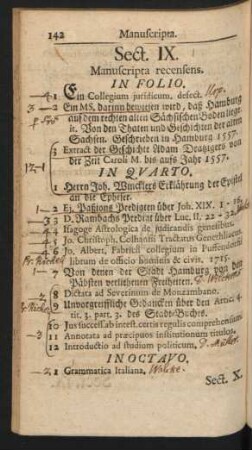 142 Manuscripta.
Sect. IX.
Manuscripta recensens.
IN FOLIO.
1 Ein Collegium juridicum, defect.
2 Ein MS. darinn bewiesen wird, daß Hamburg
auf dem rechten alten Sächsischen Boden liege
it. Von den Thaten und Geschichten der alten
Sachsen. Geschrieben in Hamburg 1557.
3 Extract der Geschicht Adam Tratzigers von
der Zeit Caroli M. bis aufs Jahr 1557.
IN QVARTO.
1 Herrn Joh. Wincklers Erklährung der Epistel
an die Epheser.
2 Ej. Paßions Predigten über Joh. XIX. 1 -
3 D. Rambachs Predigt über Luc. II. 22 - 32
4 Isagoge Astrologica de judicandis genethliis.
5 Jo. Christoph. Celthanii Tractatus
6 Jo. Albert. Fabricii collegium in Puffendorfii
librum de officio hominis & civis. 1715.
7 Von denen der Stadt Hamburg von den
Päbsten verliehenen Freiheiten.
8 Dictata ad Severinum de Monzambano.
9 Unvorgreifliche Gedancken über den Artic.
tit. 3. part. 3. des Stadt-Buchs.
10 Jus success. ab intest. certis regulis comprehensum
11 Annotata ad præcipuos institutionum titulos.
12 Introductio ad studium politicum,
IN OCTAVO,
1 Grammatica Italiana.
Sect. X.